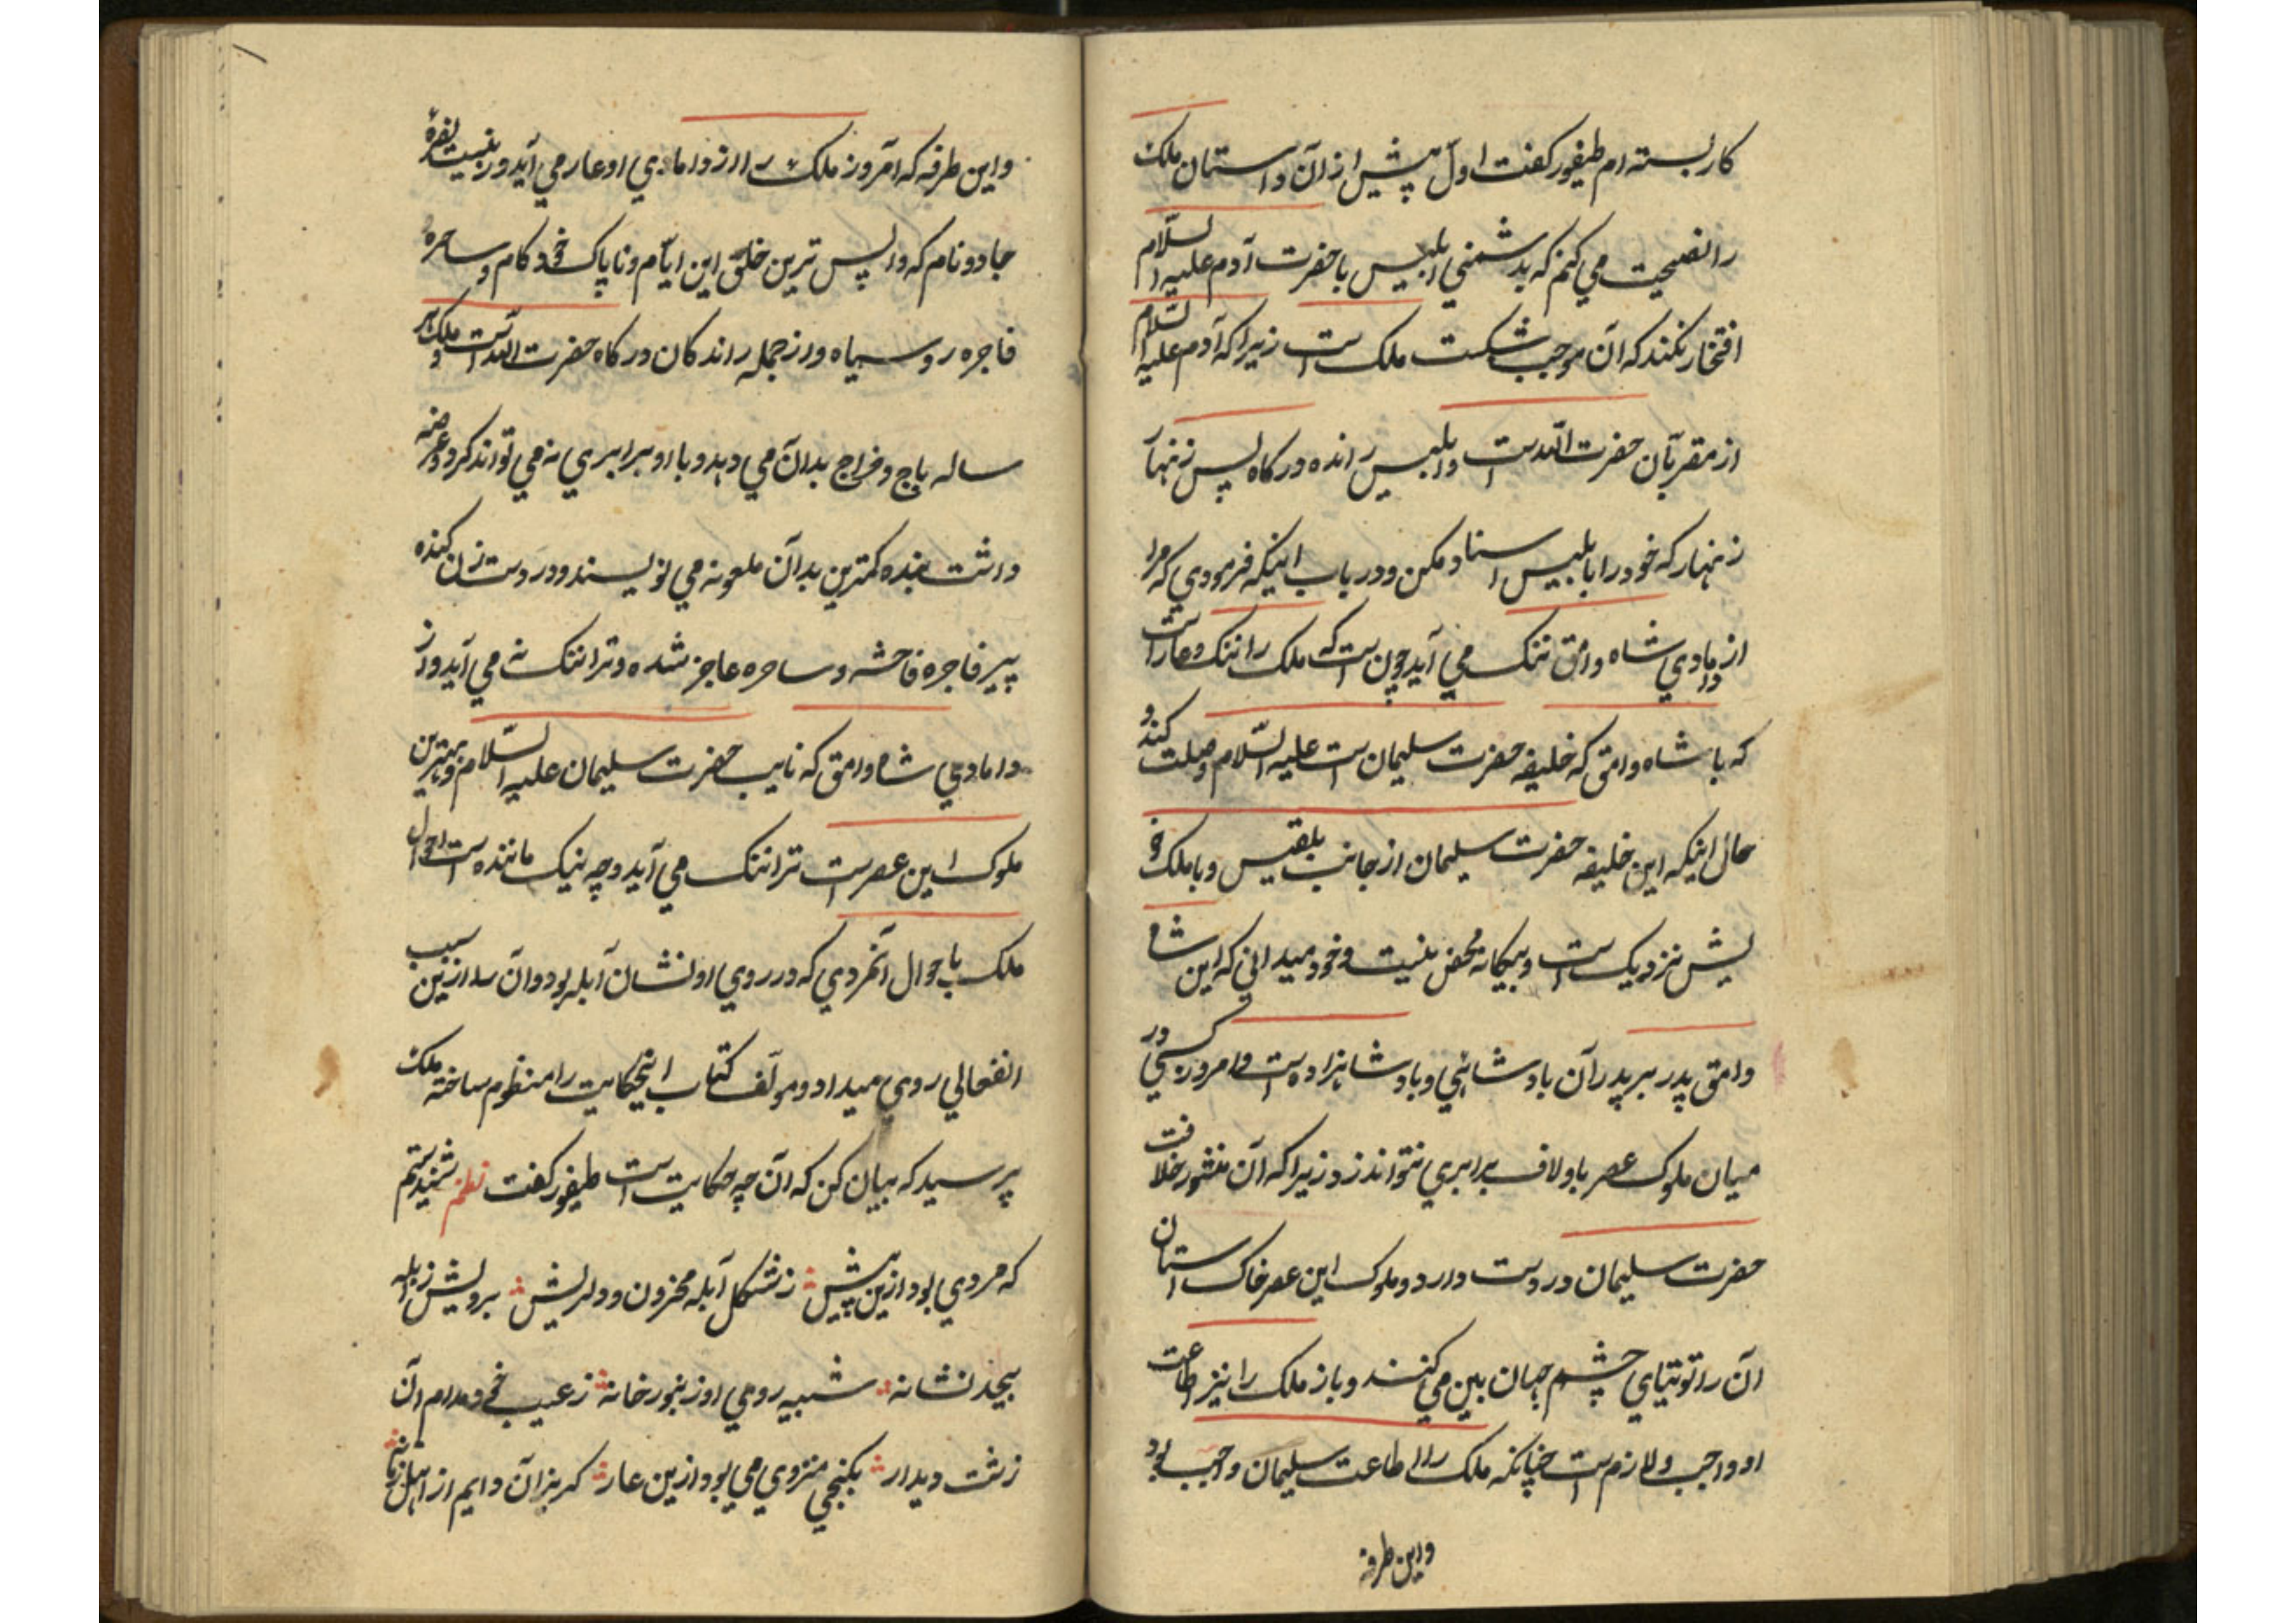 کار بسته ام طیفور کفت اول پیش از آن داستان ملک
را نصیحت می کنم که بدشمنی ابلیس با حضرت آدم علیه السّلام
افتخار نکند که آن موجب شکست ملک است زیرا که آدم علیه السّلام
از مقربّان حضرت الله است و ابلیس رانده درکاه پس زنهار
زنهار که خود را با ابلیس اسناد مکن و در باب اینکه فرمودی که مرا
از دامادی شاه وامق ننک می آید چون است که ملک را ننک و عار است
که با شاه وامق که خلیفه حضرت سلیمان است علیه السّلام وصلت کند و
حال اینکه این خلیفه حضرت سلیمان از جانب بلقیس و با ملک خو
یش نزدیک است و بیکانه محض نیست و خود میدانی که این شاه
وامق پدر بر پدر آن بادشاهی و بادشاهزاده است و امروز کسی در
میان ملوک عصر با و لاف برابری نتواند زد زیرا که آن منشور خلافت
حضرت سلیمان در دست دارد و ملوک این عصر خاک استان
آن را توتیای چشم جهان بین می کنند و باز ملک را نیز اطاعت
او واجب و لازم است چنانکه ملک را اطاعت سلیمان واجب بود
و این طرفه
و این طرفه که امروز ملک را از دامادی او عار می آید و زینت
جادو نام که واپس ترین خلق این ایّام و ناپاک خودکام و ساحره
فاجره رو سیاه و از جمله راندکان درکاه حضرت الله است و ملک هر
ساله باج و خراج بدان می دهد و با او برابری نه می تواند کرد و عرضه
داشت بنده کمترین بدآن ملعونه می نویسند و در دست زن کنده
پیر فاجره فاحشه و ساحره عاجز شده و ترا ننک نه می آید و از
دامادی شاه وامق که نایب حضرت سلیمان علیه السّلام و بهترین
ملوک این عصر است ترا ننک می آید و چه نیک ماننده است احوال
ملک با حوال آنمردی که در روی او نشان آبله بود و آن را ازین سبب
انفعالی روی میداد و مولّف کتاب اینحکایت را منظوم ساخته ملک
پرسید که بیان کن که آن چه حکایت است طیفور کفت نظم شنیدستم
که مردی بود ازین پیش زشکل آبله محزون و دلریش برویش ز ابله
بیحد نشانه شبیه روی او زنبورخانه ز عیب خود مدام آن
زشت دیدار بکنجی منزوی می بود ازین عار کریزان دایم از اهل زمانه